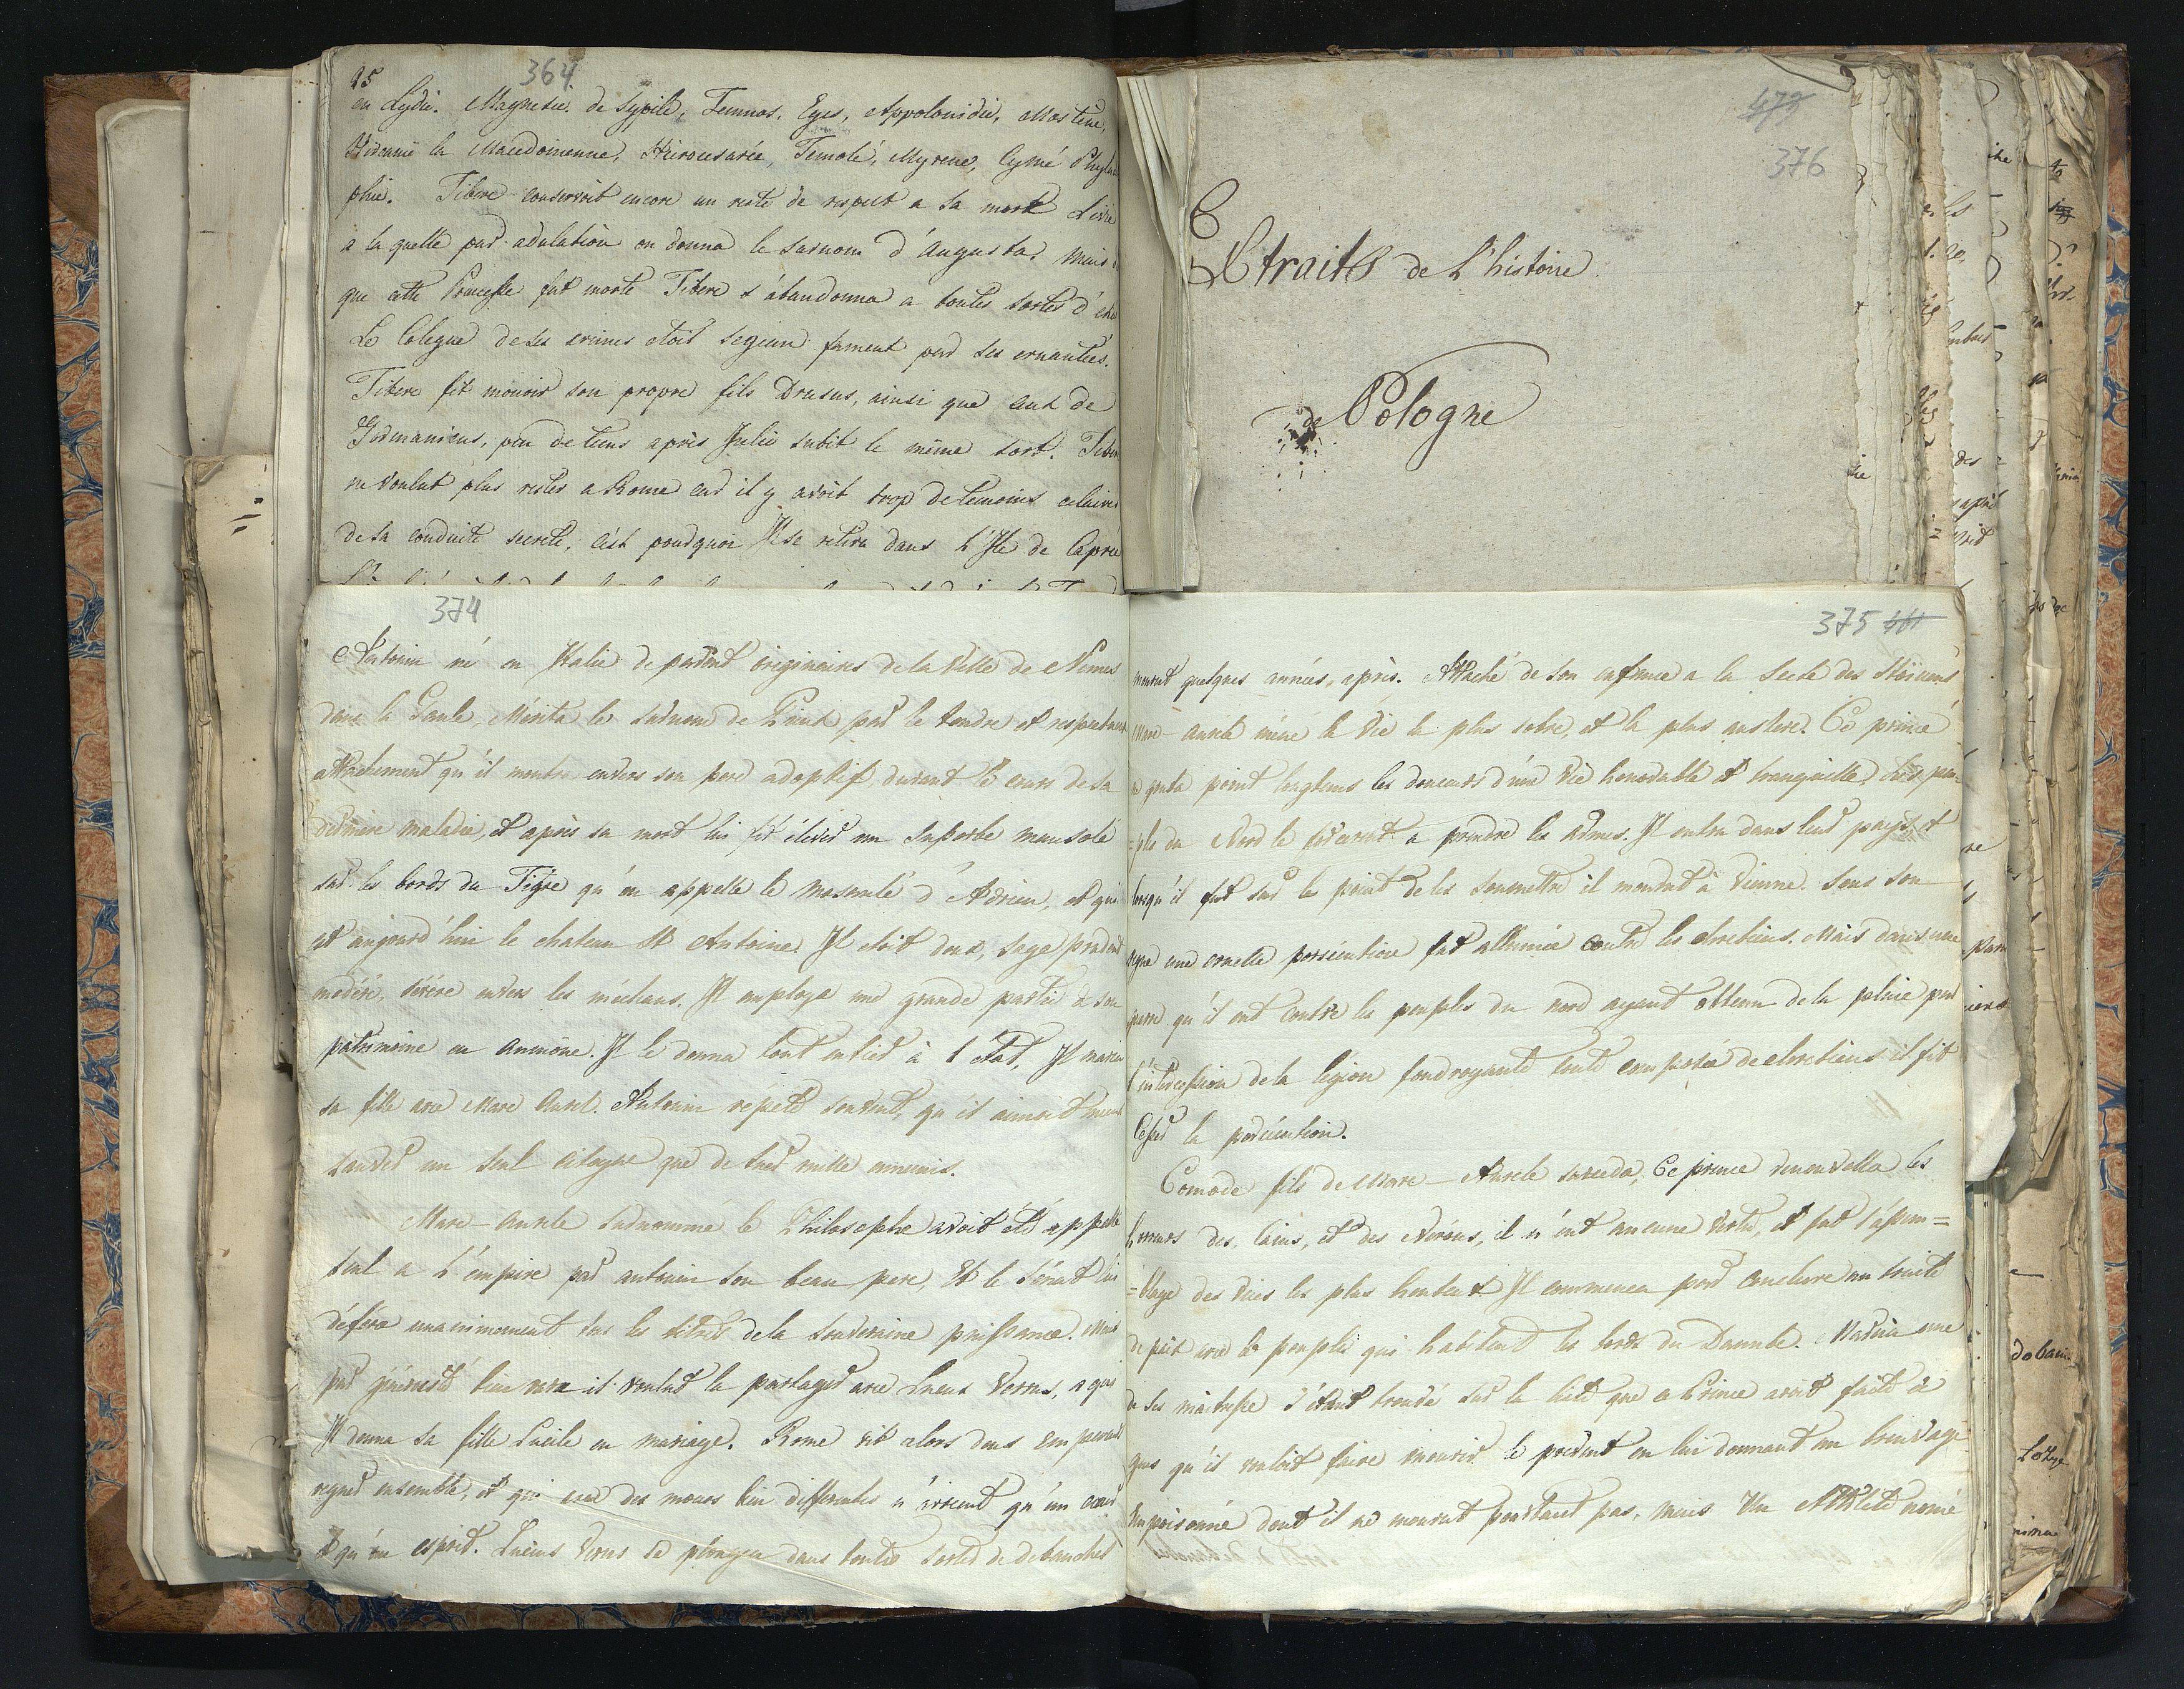 95
364
en Lydie. Magnesie de Sypile, Temnos, Eges, Appolonidie, Mostene,
Hircanie la Macedoinenne, Hierocesarée, Temolé, Myrene, Cymé
phie. Tibere conservoit encore un reste de respect a sa mere Livie
a la quelle par adulation on donna le surnom d'Augusta, mais
que cette Princesse fut morte Tibere s'abandonna a toutes sortes d'
Le Colegue de ses crimes etoit sejean fameut par ses cruautées.
Tibere fit mourir son propre fils Drusus, ainsi que ceux de
Germanicus, peu de tems après Julie subit le même sort.
ne voulut plus rester a Rome car il y avoit trop de temoins
de sa conduite secrete, c'est pourquoi Il se retira dans l'Ile de Caprée
473
376
Extraits de L'histoire
de Pologne
374
Antonin né en Italie de parent originaires de la Ville de Nimes
dans la Gaule, Mérita le surnom de Pieux par le tendre et respectueux
attachement qu'il montra envers son pere adoptif, durant le cours de sa
derniere maladie, et après sa mort lui fit élever un superbe mausolé
sur les bords du Tigre qu'on appelle le mosoulé d'Adrien, et qui
est aujourd'hui le chateau St Antoine. Il etoit doux, sage prudent
modéré, sévére envers les méchans. Il employa une grande partie de son
patrimoine en aumône. Il le donna tout entier à l'état, Il maria
sa fille avec Marc Aurel. Antonin repete souvent, qu'il aimoit mieux
sauver un seul citoyen que de tuer mille ennemis.
Marc-Aurele surnommé le Philosophe avoit été appellé
seul a L'empire par antonin son beau pere, Et le Sénat lui
défera unanimement tus les titres de la souveraine puissance. Mais
par générosité bien rare il voulut la partager avec Lucius Verus, a qui
Il donna sa fille Lucile en mariage. Rome vit alors deux Empereurs
regner ensemble, et qui avec des moeurs bien differentes n'avoient qu'un coeur
et qu'un esprit. Lucius Verus se plongea dans toutes sortes de debauches
375
mourut quelques années, après. Attaché de son enfance a la Secte des Stoïciens
Marc-Aurele mène la vie la plus sobre, et la plus austere. Ce prince
ne gouta point longtems les douceurs d'une vie honorable et tranquille, Les peu=
=ples du Nord le forcerent a prendre les armes. Il entra dans leur pays et
lorsqu'il fut sur le point de les soumettre il mourut à Vienne. Sous son
regne une cruelle persécution fut allumée contre les chretiens. Mais dans une
guerre qu'il eut contre les peuples du nord ayant obtenu de la pluie par
l'intercession de la légion foudroyante toute composée de chretiens il fit
Cesser la persécution.
Comode fils de Marc-Aurele succeda, Ce prince renouvella les
horreurs des Caius, et des Nérons, il n'eut aucune vertu, et fut l'assem=
=blage des vices les plus honteux Il commenca par conclurre un traité
de paix avec les peuples qui habitent les bords du Danube. Marcia une
de ses maitresse s'étant trouvé sur la liste que ce Prince avoit faite de
gens qu'il vouloit faire mourir le prévint en lui donnant un breuvage
Empoisonné dont il ne mourut pourtant pas, mais Un Athlete nomé